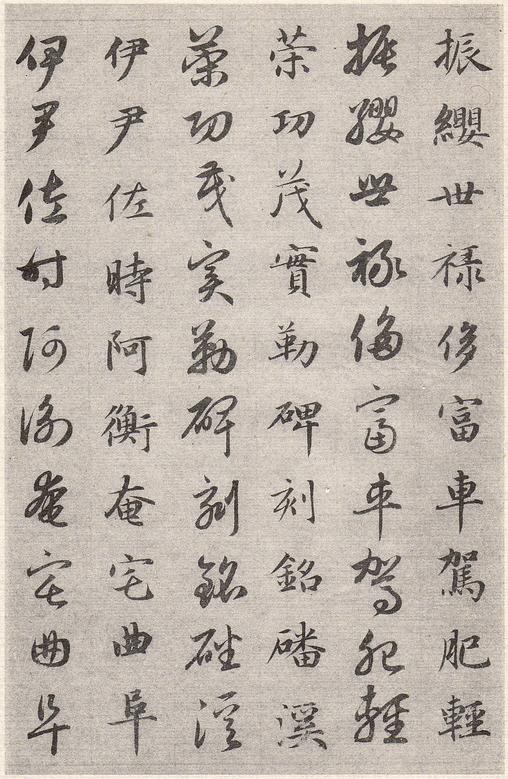 振纓世禄侈富車駕肥輕
振纓世禄侈富車駕肥輕
榮功茂實勒碑刻銘磻溪
榮功茂實勒碑刻銘磻溪
伊尹佐時阿衡奄宅曲阜
伊尹佐時阿衡奄宅曲阜